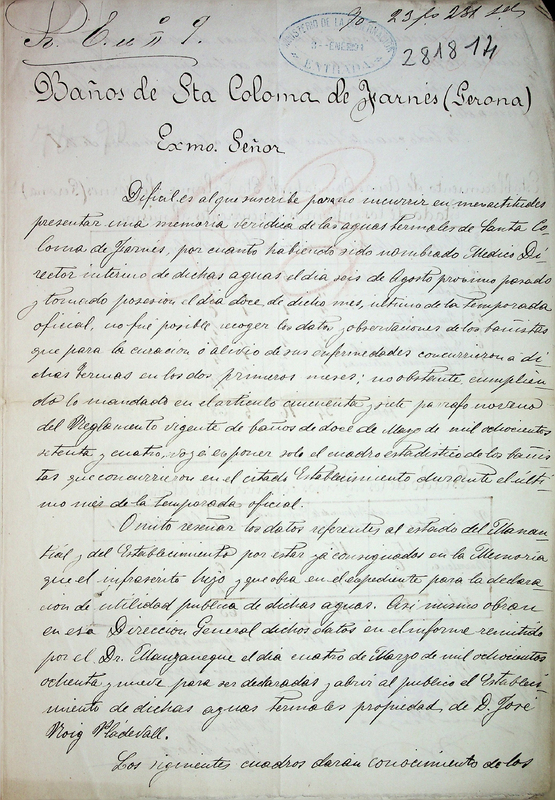 281814
MINISTERIO DE LA GOBERNACION
ENTRADA
Baños de Sta Coloma de Farnés (Gerona)
Exmo. Señor
Dificil es al que suscribe para no incurrir en inexactitudes
presentar una memoria veridica de las aguas termales de Santa Co-
loma de Farnés, por cuanto habiendo sido nombrado Medico Di-
rector interino de dichas aguas el dia seis de Agosto proximo pasado
y tomado posesion el dia doce de dicho mes, ultimo de la temporada
oficial, no fué posible recoger los datos y observaciones de los bañistas
que para la curacion ó alivio de sus enfermedades concurrieron a di-
chas termas en los dos primeros meses; no obstante cumplien-
do lo mandado en el articulo cincuenta y siete parrafo noveno
del Reglamento vigente de baños de doce de Mayo de mil ochocientos
setenta y cuatro, voy á exponer solo el cuadro estadistico de los bañis-
tas que concurrieron en el citado Establecimiento durante el últi-
mo mes de la temporada oficial.
Omito reseñar los datos referentes al estado del Manan-
tial y del Establecimiento por estar yá consignados en la Memoria
que el infrascrito hizo y que obra en el expediente para la declara-
cion de utilidad publica de dichas aguas. Asi mismo obran
en esa Direccion General dichos datos en el informe remitido
por el Dr. Manzaneque el dia cuatro de Marzo de mil ochocientos
ochenta y nueve para ser declaradas y abrir al publico el Estableci-
miento de dichas aguas termales propiedad de D. José
Roig Pládevall.
Los siguientes cuadros darán conocimiento de los